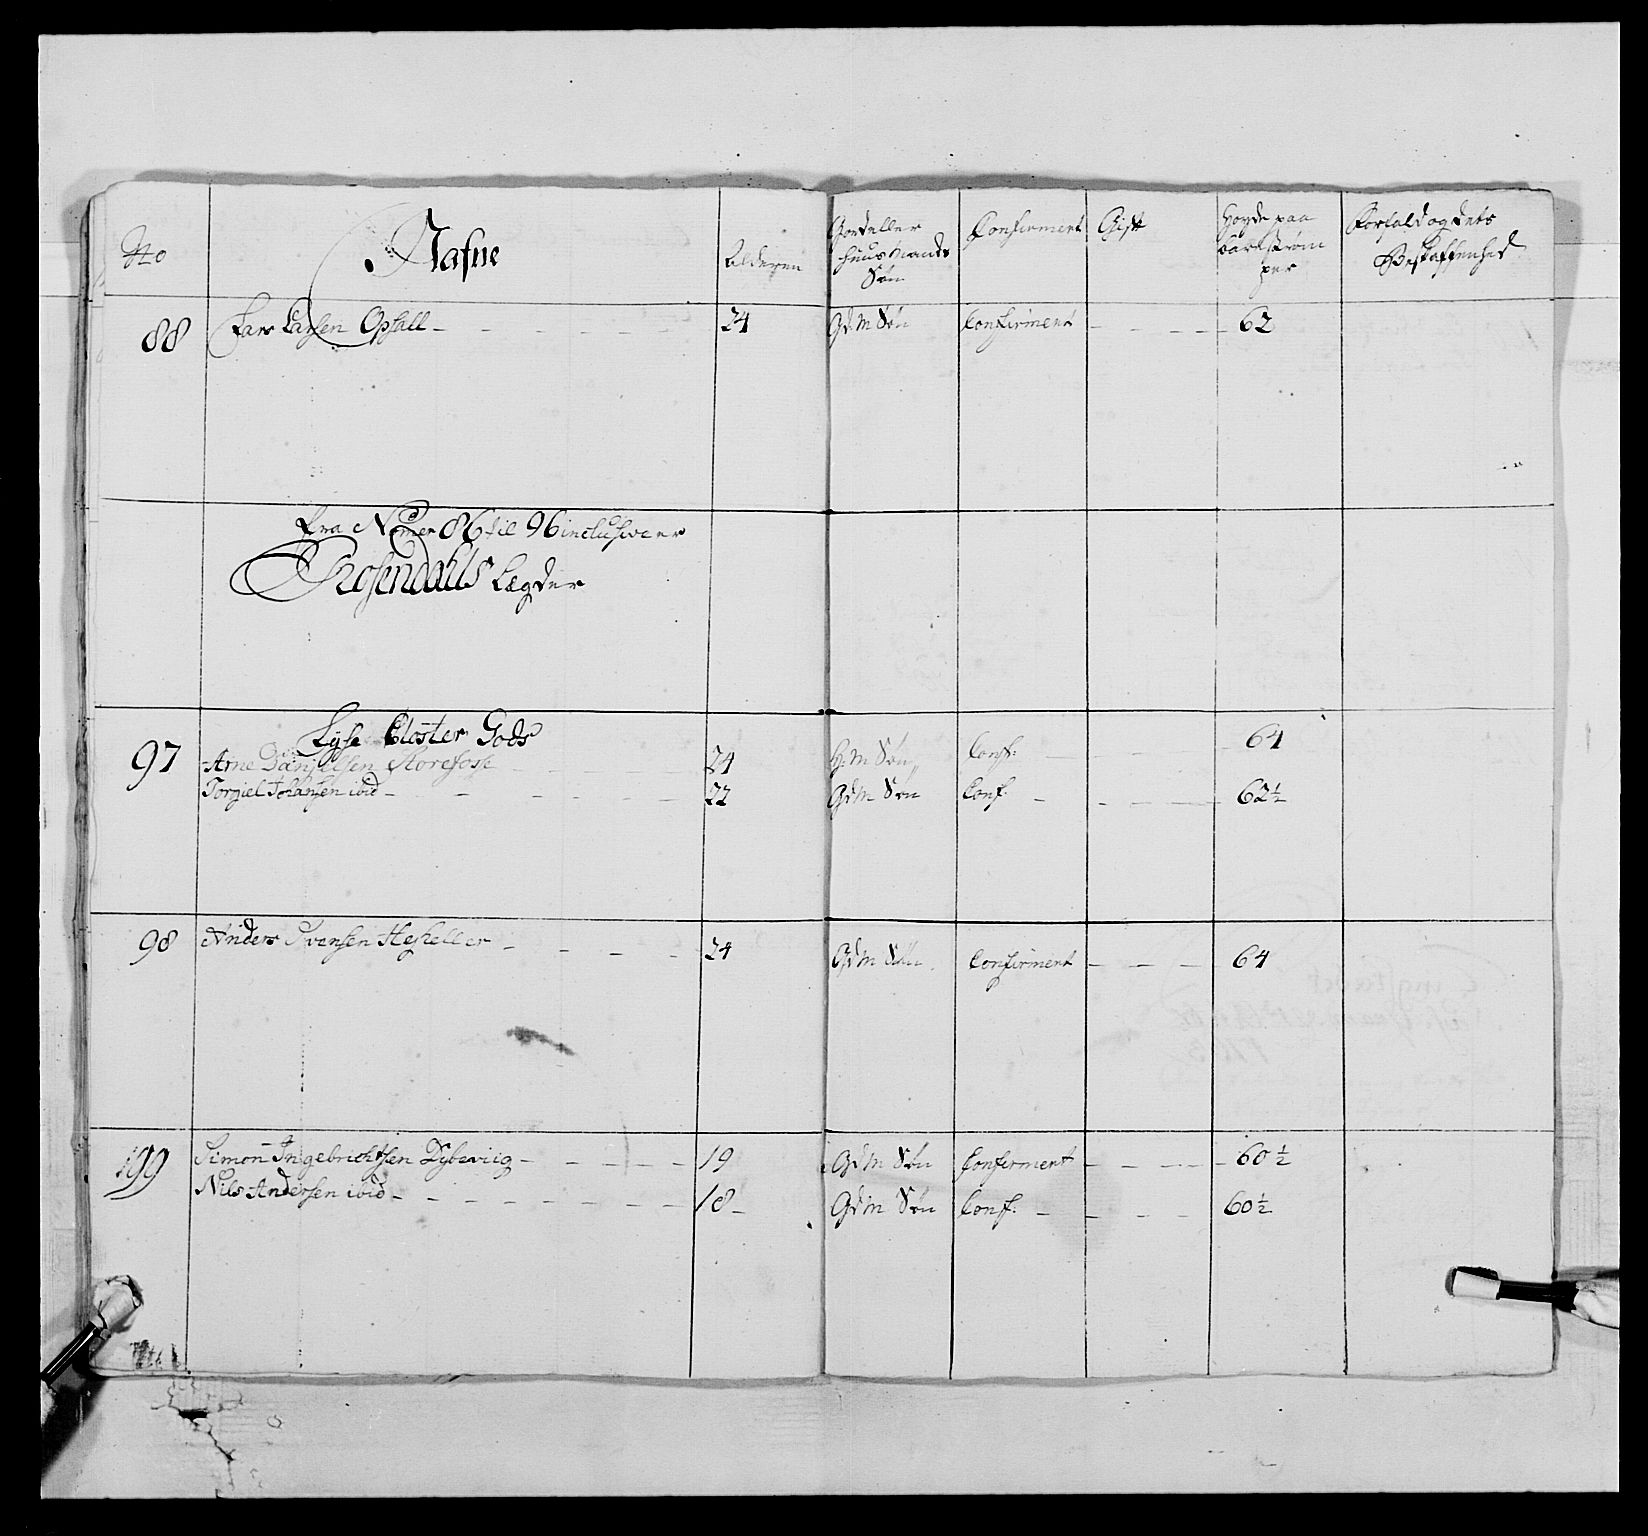 No Nafne Alderen Gaard eller Huusmands Søn Confirment Gift Høyde paa barkstrømper Forfald og dets Beskaffenhed
88 Lars Larsen Opsall - - - - - - 24 Gdm Søn Confirment - - - - 62
Fra Nomer 86 til 96 inclusive er
Rosendahls Lægder
Lyse Closter Gods
97 Arne Danielsen Storefosse - - - - 24 H: M Søn Conf: - - - 64
Torgiel Johansen ibid - - - - - 22 Gdm Søn Conf - - - - 62½
98 Anders Svensen Hefteller - - - - 24 Gdm Søn Confirment - - - 64
199 Simon Ingebrichtsen Dybeviig - - - - - 19 Gdm Søn Confirment - - - - 60½
Nils Andersen ibid - - - - - - - - 18 - Gdm Søn Conf: - - - - 60½